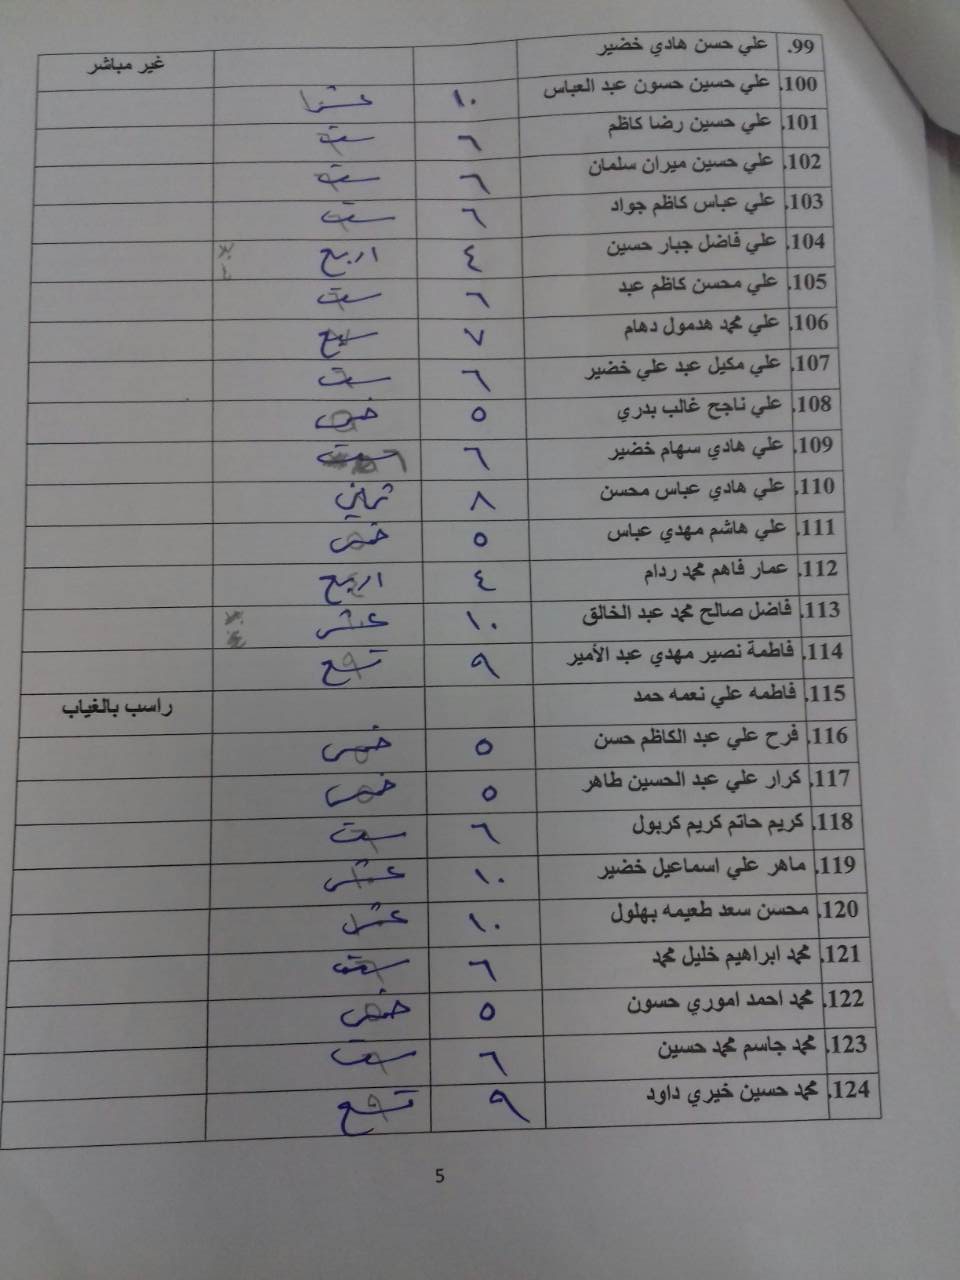 .99 علي حسن هادي خضير غير مباشر
.100 علي حسين حسون عبد العباس ١٠ عشر
.101 علي حسين رضا كاظم ٦ ست
.102 علي حسين ميران سلمان ٦ ست
.103 علي عباس كاظم جواد ٦ ست
.104 علي فاضل جبار حسين ٤ اربع
.105 علي محسن كاظم عبد ٦ ست
.106 علي محمد هدمول دهام ٧ سبع
.107 علي مكيل عبد علي خضير ٦ ست
.108 علي ناجح غالب بدري ٥ خمس
.109 علي هادي سهام خضير ٦ ست
.110 علي هادي عباس محسن ٨ ثماني
.111 علي هاشم مهدي عباس ٥ خمس
.112 عمار فاهم محمد ردام ٤ اربع
.113 فاضل صالح محمد عبد الخالق ١٠ عشر
.114 فاطمة نصير مهدي عبد الأمير ٩ تسع
.115 فاطمه علي نعمه حمد راسب بالغياب
.116 فرح علي عبد الكاظم حسن ٥ خمس
.117 كرار علي عبد الحسين طاهر ٥ خمس
.118 كريم حاتم كريم كربول ٦ ست
.119 ماهر علي اسماعيل خضير ١٠ عشر
.120 محسن سعد طعيمه بهلول ١٠ عشر
.121 محمد ابراهيم خليل محمد ٦ ست
.122 محمد احمد اموري حسون ٥ خمس
.123 محمد جاسم محمد حسين ٦ ست
.124 محمد حسين خيري داود ٩ تسع
5